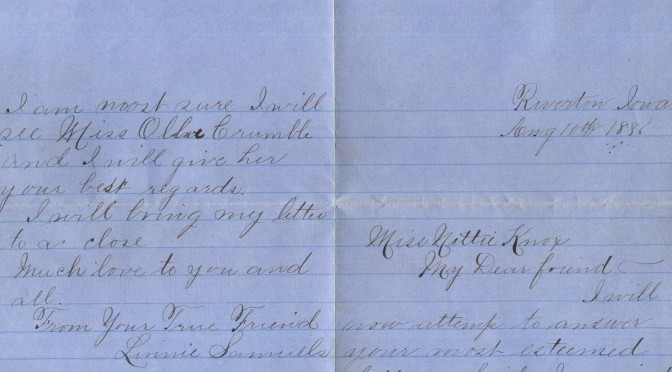 I am most sure I will
see Miss Ollie Crumble
and I will give her
your best regards.
I will bring my letter
to a close
Much love to you and
all.
From Your True Friend
Linnie Samuels
Riverton Iowa
Aug 10th
Miss Nittie Knox
My Dear friend
I will
now attemp to answer
your most esteemed